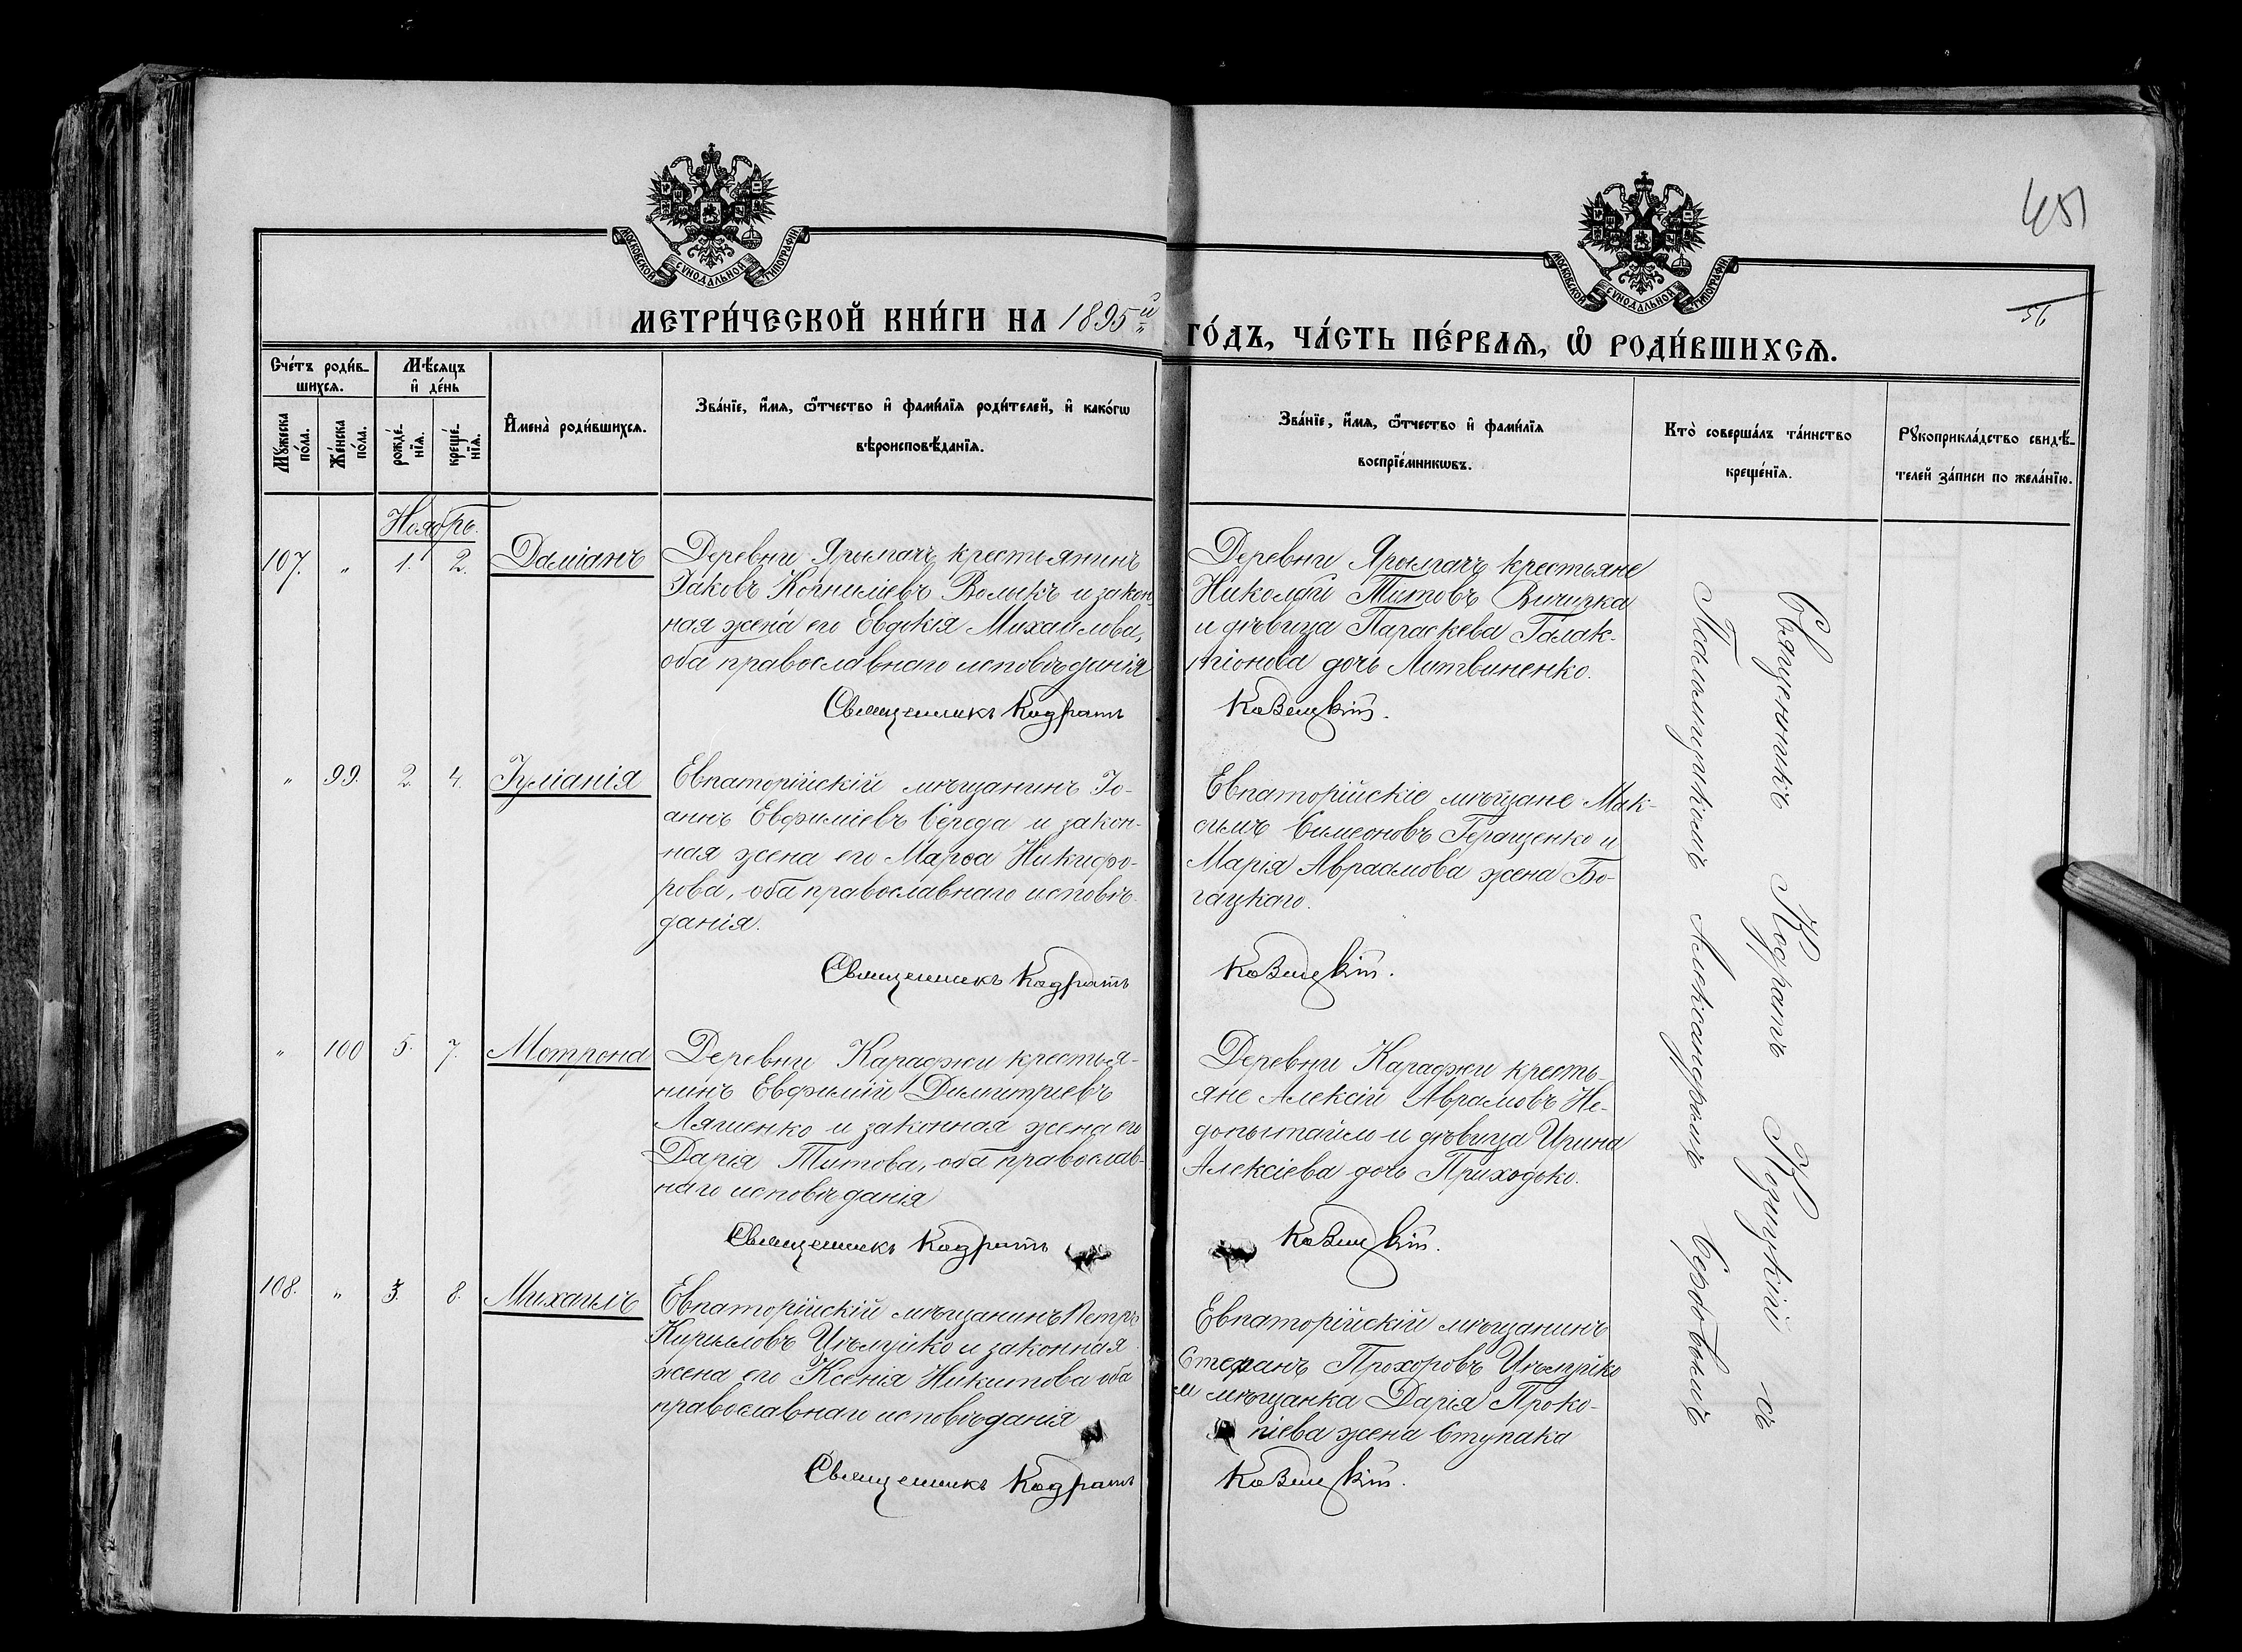 451
56
МОСКОВСКОЙ СѴНОДАЛЬНОЙ ТИПОГРАФІИ
МОСКОВСКОЙ СѴНОДАЛЬНОЙ ТИПОГРАФІИ
МЕТРИ́ЧЕСКОЙ КНИ́ГИ НА 1895й
ГО́ДЪ, ЧА́СТЬ ПЕ́РВАѦ, Ѡ҆ РОДИ́ВШИХСѦ.
Сче́тъ роди́в-
шихсѧ.
Мꙋ́жеска
по́ла.
Же́нска
по́ла.
Мѣ́сѧцъ
и҆ де́нь
рожде́-
нїѧ.
креще́-
нїѧ.
И҆мена̀ роди́вшихсѧ.
Зва́нїе, и҆́мѧ, ѻ҆́тчество и҆ фами́лїѧ роди́телей, и҆ како́гѡ
вѣроисповѣ́данїѧ.
Зва́нїе, и҆́мѧ, ѻ҆́тчество и҆ фами́лїѧ
воспрїе́мникѡвъ.
Кто̀ соверша́лъ та́инство
креще́нїѧ.
Рꙋкоприкла́дство свидѣ́-
телей за́писи по жела́нїю.
Ноябрь.
107. " 1. 2. Даміанъ
Деревни Ярылгачъ крестьянинъ
Іаковъ Корниліевъ Волыкъ и закон-
ная жена его Евдокія Михаилова,
оба православнаго исповѣданія
Священникъ Кодратъ
Деревни Ярылгачъ крестьяне
Николай Титовъ Вичирка
и дѣвица Параскева Галак-
тіонова дочь Литвиненко.
Козицкій.
" 99. 2. 4. Іуліанія
Евпаторійскій мѣщанинъ Іо-
аннъ Евфиміевъ Середа и закон-
ная жена его Марѳа Никифо-
рова, оба православнаго исповѣ-
данія.
Священникъ Кодратъ
Евпаторійскіе мѣщане Мак-
симъ Симеоновъ Геращенко и
Марія Авраамова жена Бо-
гацкаго.
Козицкій.
" 100 5. 7. Мотрона
Деревни Караджи крестья-
нинъ Евфимій Димитріевъ
Ляшенко и законная жена его
Дарія Титова, оба православ-
наго исповѣданія
Священникъ Кодратъ
Деревни Караджи кресть-
яне Алексій Аврамовъ Не-
допытайло и дѣвица Ирина
Алексіева дочь Приходько.
Козицкій.
108. " 3. 8. Михаилъ
Евпаторійскій мѣщанинъ Петръ
Кирилловъ Цѣлуйко и законная
жена его Ксенія Никитова оба
православнаго исповѣданія
Священникъ Кодратъ
Евпаторійскій мѣщанинъ
Стефанъ Прохоровъ Цѣлуйко
и мѣщанка Дарія Проко-
піева жена Ступака
Козицкій.
Священникъ Кодратъ Козицкій съ
Псаломщикомъ Александромъ Сербовымъ